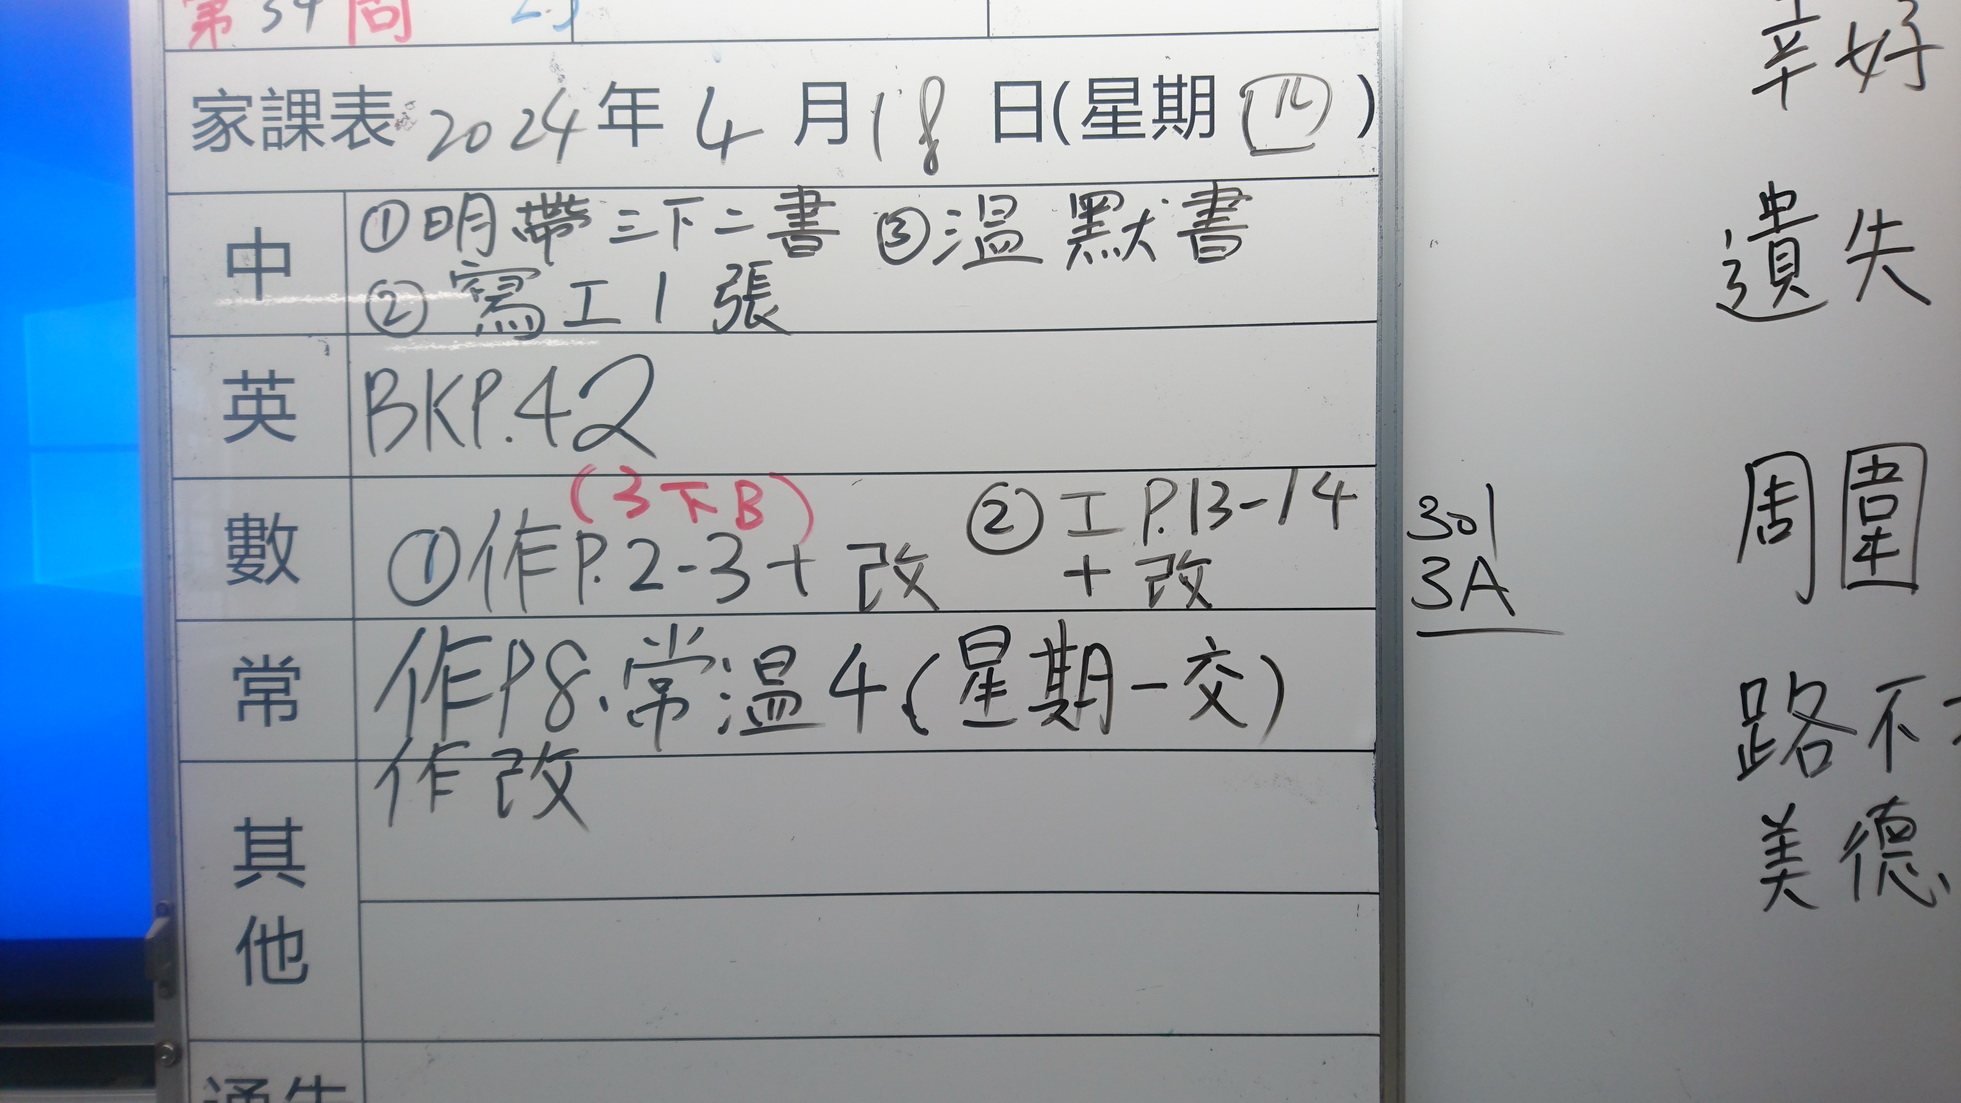 第34問
家課表 2024年4月18日(星期四)
中
①明帶三下二書 ③溫默書
②寫工1張
英
BKP.42
數
(3下B)
①作P.2-3+改
②工P.13-14
+改
常
作P8.常溫4(星期一交)
作改
其他
通告
301
3A
幸好
遺失
周圍
路不
美德